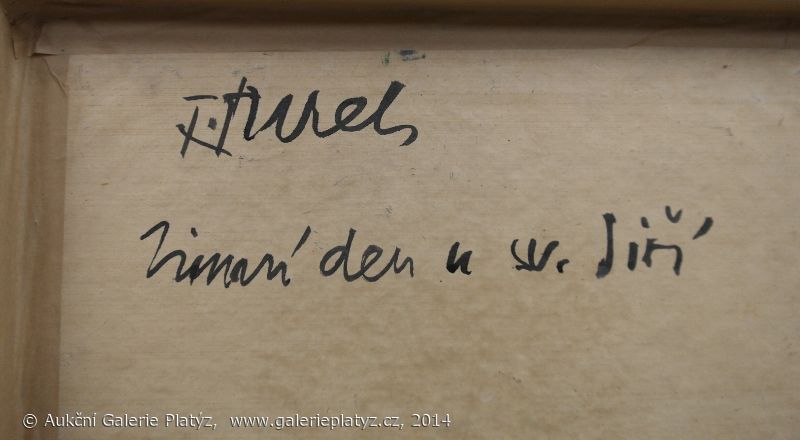 Zimní den u sv. Jiří
© Aukční Galerie Platýz, www.galerieplatyz.cz, 2014